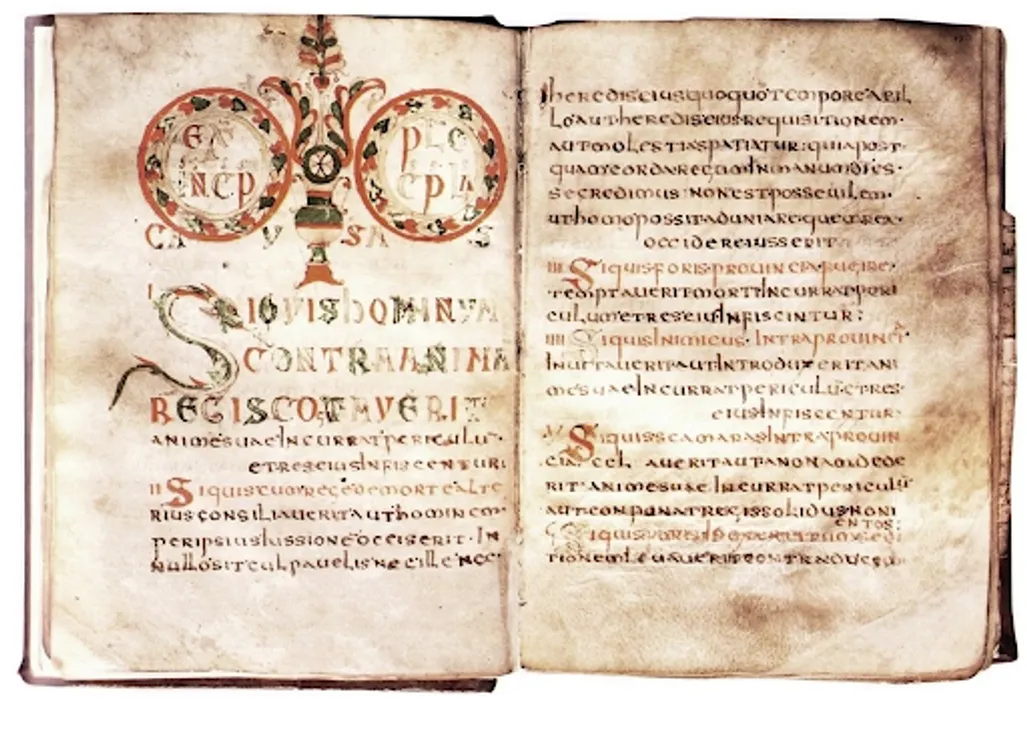 CA
SA
SIQUIS HOMINVM
CONTRA ANIMA
REGIS COGTAVERIT
ANIMESUAEINCURRATPERICULU
ETRESEIUSINFISCENTUR
II SIQUISCUMREGEDEMORTEALTE
RIUSCONSILIAUERITAUTHOMINEM
PERIPSIUSIUSSIONEOCCISERIT·IN
NULLOSITCULPAUELISNECILLENEC
HEREDISEIUSQUOQUOTEMPOREABIL
LOAUTHEREDISEIUSREQUISITIONEM
AUTMOLESTIASPATIATUR:QUIAPOST
QUAMCORDAREGUMINMANUMDIES
SECREDIMUS·NONESTPOSSEUILEM·
UTHOMOPOSSITADUNIAREQUEMREX
OCCIDEREIUSSERIT
III SIQUISFORISPROUINCIAFUGIRE
TEMPTAUERITMORTIINCURRATPERI
CULUMETRESEIUSINFISCENTUR:
IIII SIQUISINIMICUS·INTRAPROUINCI
INUITAUERITAUTINTRODUXERITANI
MESUAEINCURRATPERICULUETRES
EIUSINFISCENTUR·
V SIQUISSCAMARASINTRAPROUIN
CIA CEL AUERITAUTANNONAMDEDE
RIT·ANIMESUAE·INCURRATPERICULU
AUTCONPONATREGISSOLIDUSNONI
ENTOS:
TIONEMLEUAUERITCONTRADUCEM